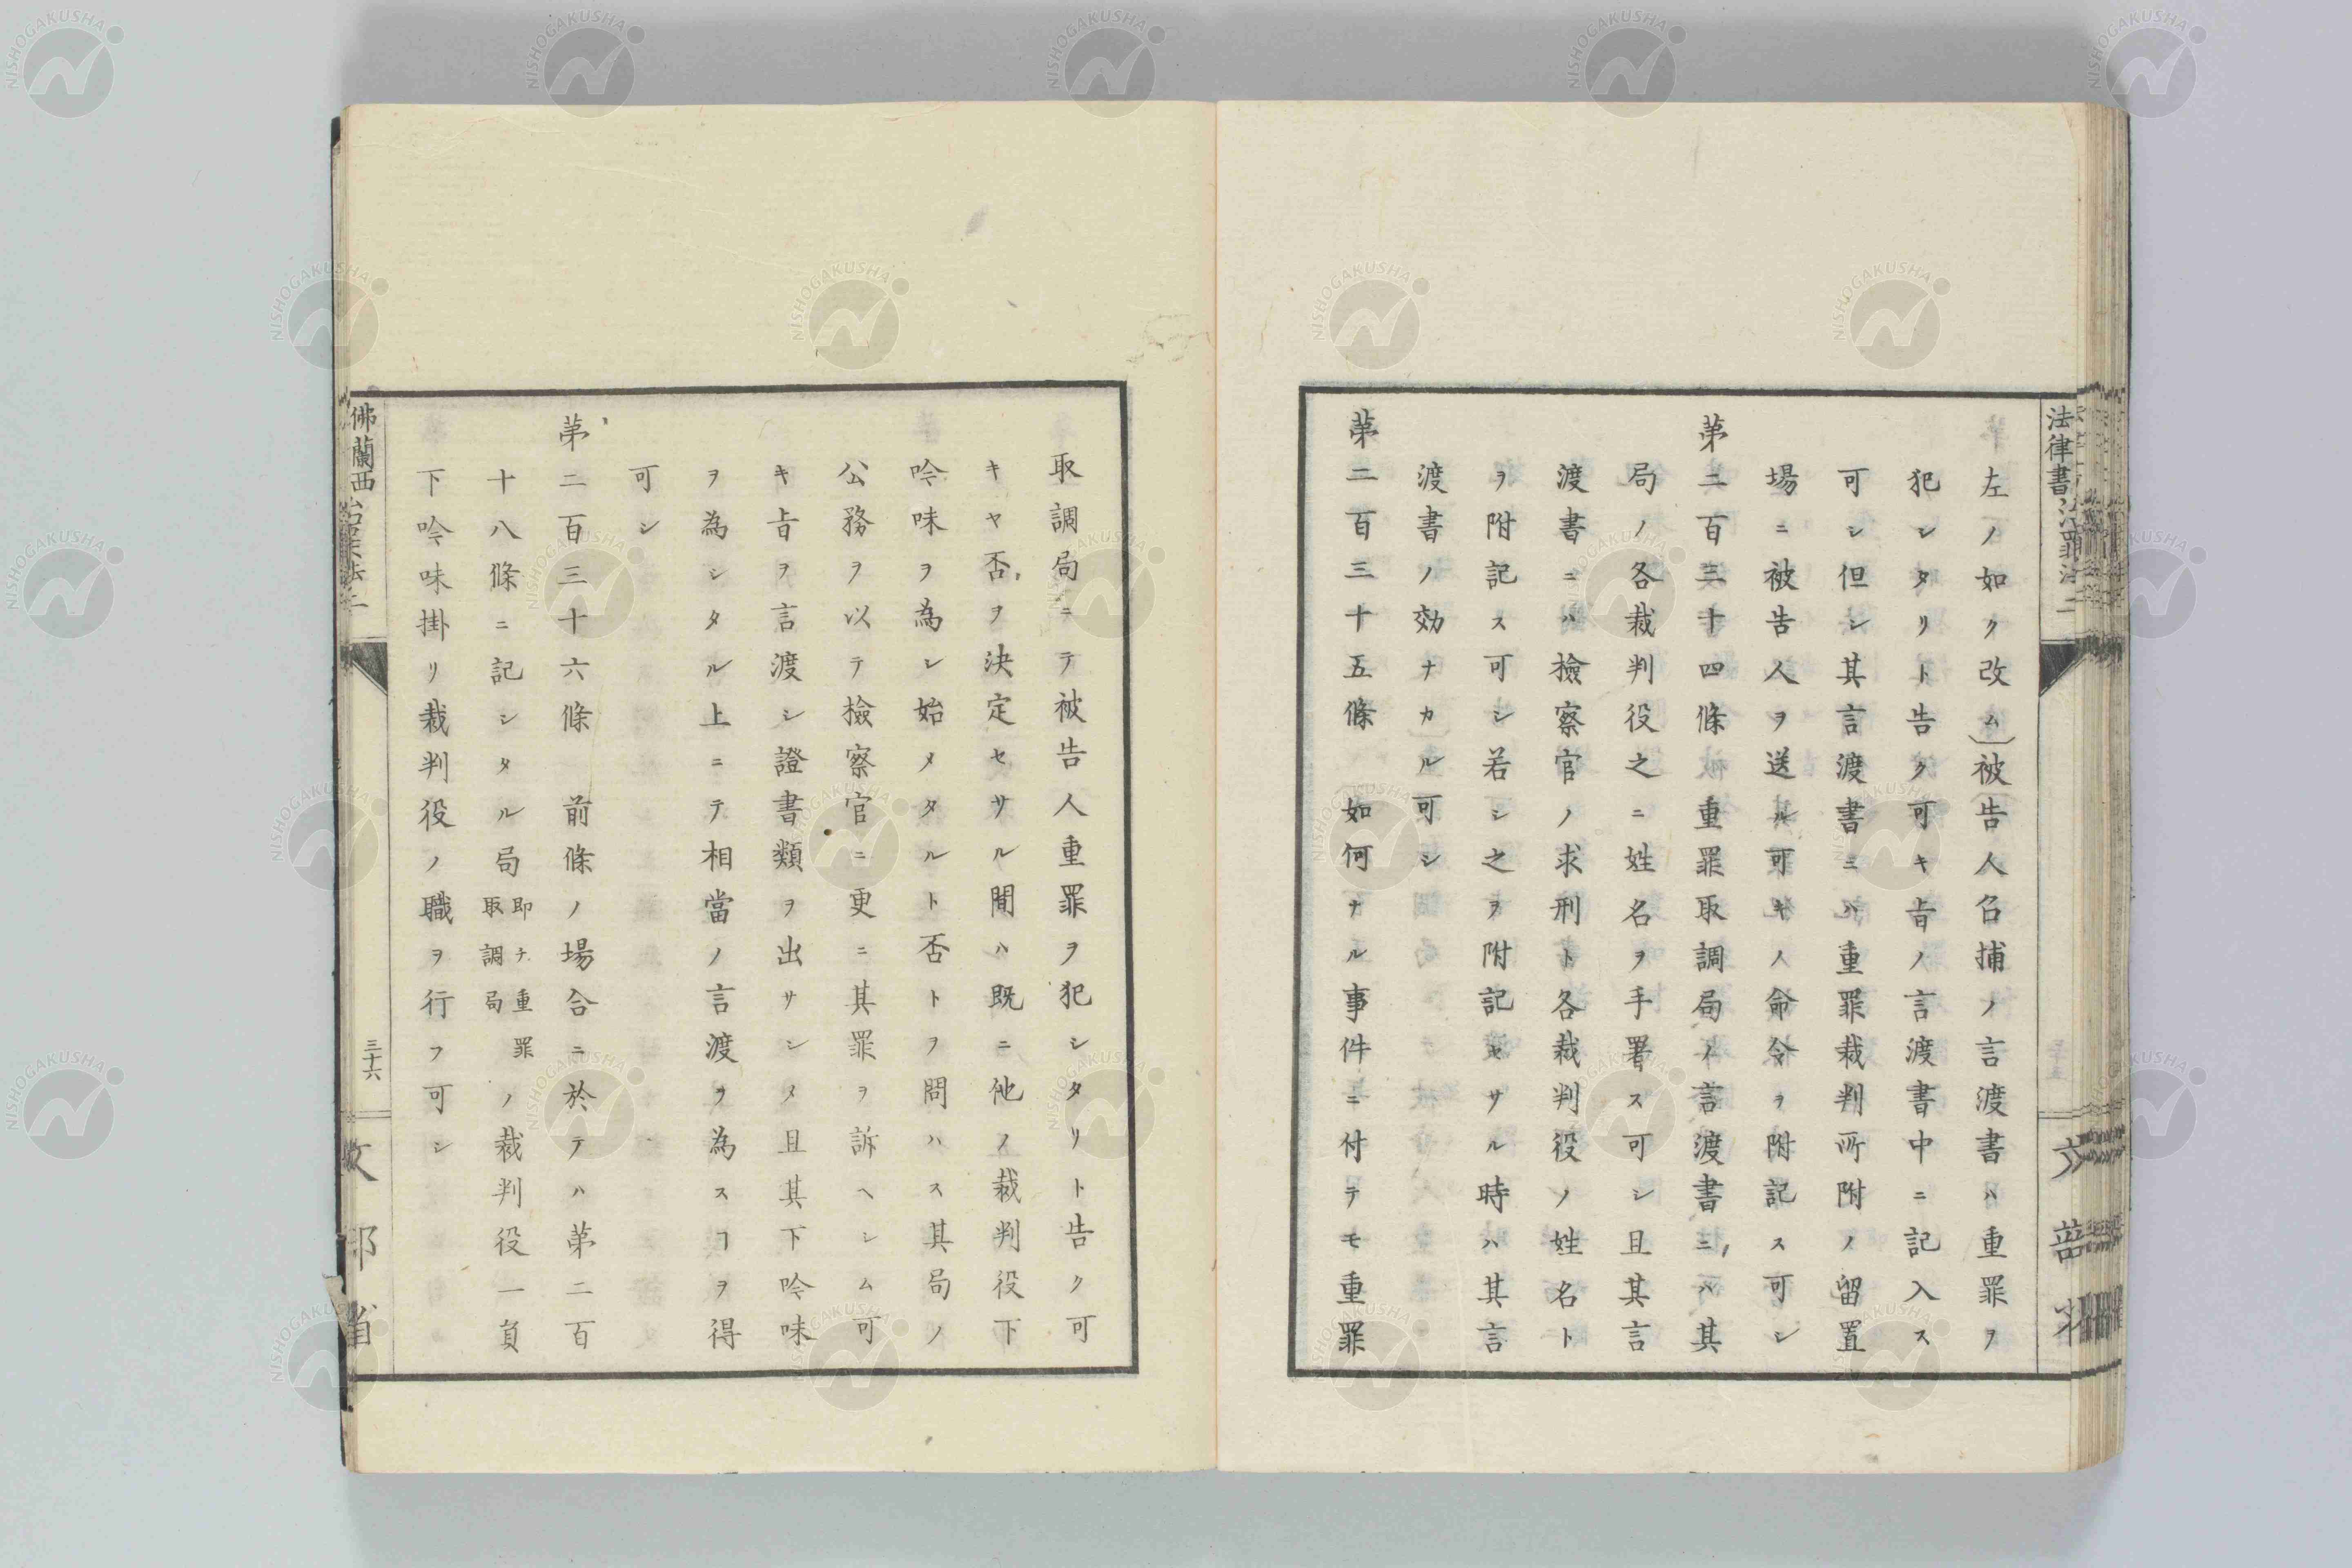 法律書治罪法二
左ノ如ク改ム〕被告人召捕ノ言渡書ハ重罪ヲ
犯シタリト告ク可キ旨ノ言渡書中ニ記入ス
可シ但シ其言渡書ニハ重罪裁判所附ノ留置
場ニ被告人ヲ送ル可キノ命令ヲ附記ス可シ
第二百三十四條重罪取調局ノ言渡書ニハ其
局ノ各裁判役之ニ姓名ヲ手署ス可シ且其言
渡書ニハ檢察官ノ求刑ト各裁判役ノ姓名ト
ヲ附記ス可シ若シ之ヲ附記セサル時ハ其言
渡書ノ効ナカル可シ
第二百三十五條 如何ナル事件ニ付テモ重罪
取調局ニテ被告人重罪ヲ犯シタリト告ク可
キヤ否ヲ決定セサル間ハ既ニ他ノ裁判役下
吟味ヲ為シ始メタルト否トヲ問ハス其局ノ
公務ヲ以テ檢察官ニ更ニ其罪ヲ訴ヘシム可
キ旨ヲ言渡シ證書類ヲ出サシメ且其下吟味
ヲ為シタル上ニテ相當ノ言渡ヲ為スヿヲ得
可シ
第二百三十六條 前條ノ場合ニ於テハ第二百
十八條ニ記シタル局即チ重罪取調局ノ裁判役一負
下吟味掛リ裁判役ノ職ヲ行フ可シ
佛蘭西治罪法二
三十六
文部省
NISHOGAKUSHA